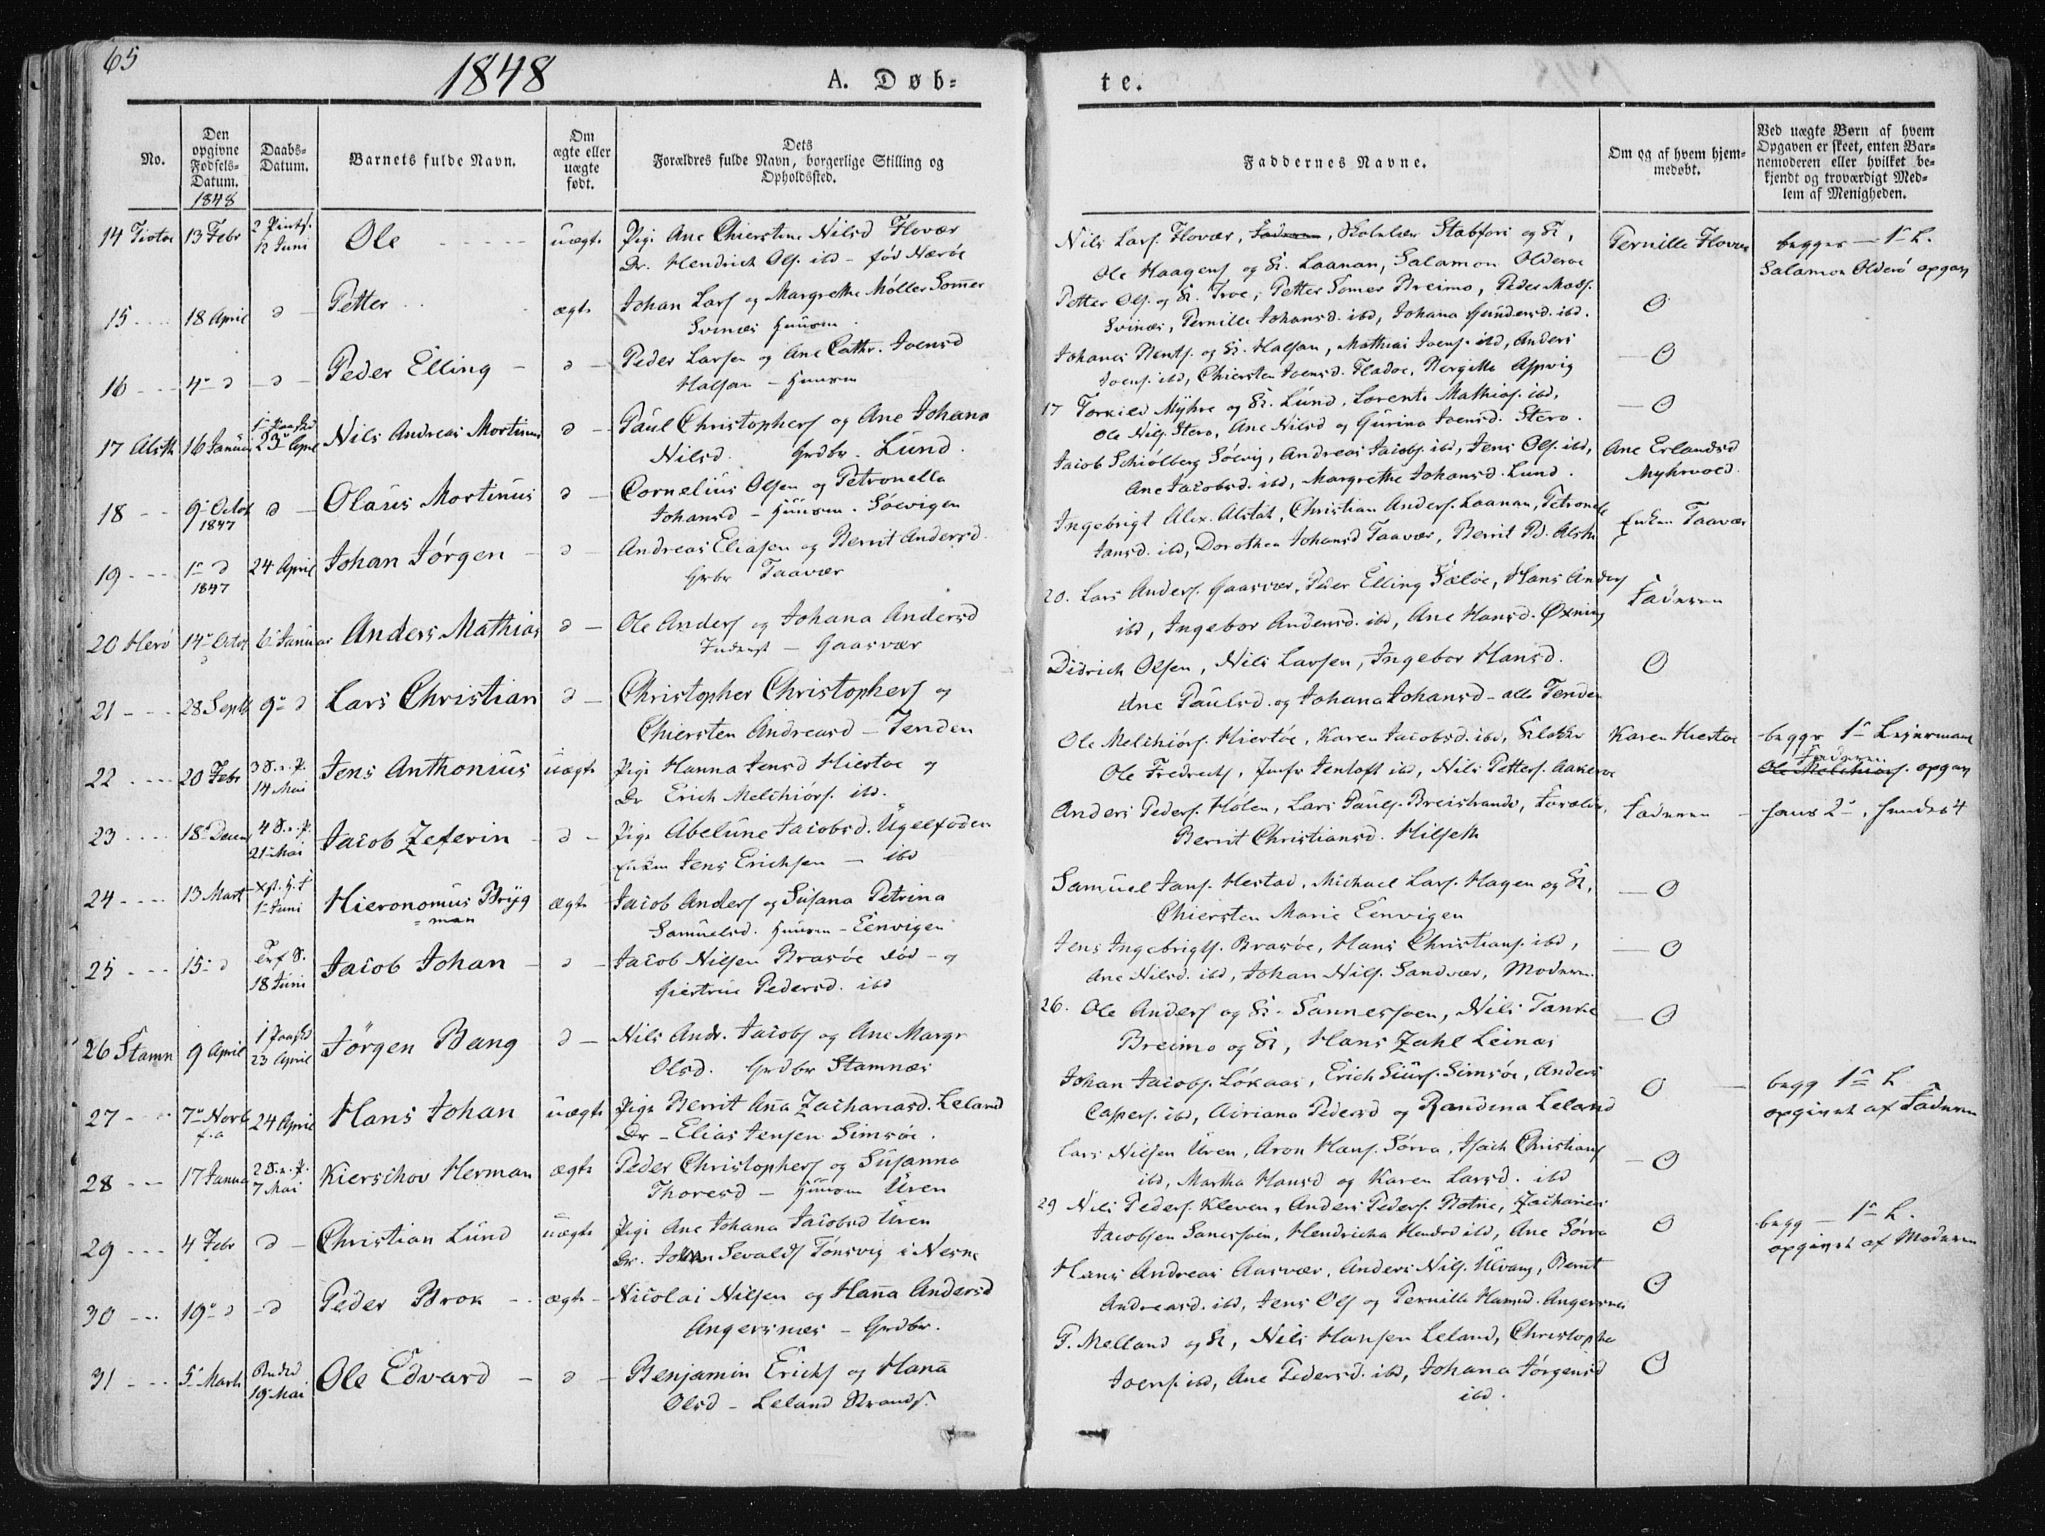 65
1848
A. Døb-
te.
No.
Den opgivne Fødsels-Datum. 1848
Daabs-Datum.
Barnets fulde Navn.
Om ægte eller uægte født.
Dets Forældres fulde Navn, borgerlige Stilling og Opholdsted.
Faddernes Navne.
Om og af hvem hjem-medøbt.
Ved uægte Børn af hvem Opgaven er skeet, enten Bar-nemoderen eller hvilket be-kjendt og troværdigt Med-lem af Menigheden.
14 Tiøtøe 13 Febr 2 Pintsd. 12 Juni Ole uægte Pige Ane Chierstine Nilsd Flovær
Dr. Hendrich Ols. ibd - fød Nærøe
Nils Lars. Flovær, Faderen, Stabfors og K,
Ole Haagens og K. Laanan, Salamon Olderøe
Pernille Flovær
begges - 1te L.
Salamon Olderø opgav
15 18 April d Petter ægte Johan Lars og Margrethe Møller Sommer
Svinæs Huusm.
Petter Ols. og K. Troe, Petter Somer Breimo, Peder Mads.
Svinæs, Pernille Johansd. ibd, Johana Gundersd. ibd.
0
16 4 d d Peder Elling d Peder Larsen og Ane Cathr. Joensd
Halsan - Huusm
Johanes Bents. og K. Halsan, Mathias Joens. ibd, Anders
Joens. ibd, Chiersten Joensd. Fladøe, Bergitte Aspvig
0
17 Alsth 16 Januar 1 Paaskd 23 April Nils Andreas Mortinus d Paul Christophers og Ane Johana
Nilsd. Grdbr. Lund.
17 Torkild Myhre og K. Lund, Lorents Mathias. ibd,
Ole Nils. Stero, Ane Nilsd og Gurina Joensd. Stero.
0
18 9 Octob 1847 d Olaus Mortinus d Cornelius Olsen og Petronella
Johansd - Huusm. Søevigen
Jacob Schiølberg Søevig, Andreas Jacobs. ibd, Jens Ols. ibd,
Ane Jacobsd. ibd, Margrethe Johansd. Lund.
Ane Erlandsd
Myhrvold
19 1 d 1847 24 April Johan Jørgen d Andreas Eliasen og Berrit Andersd.
Grbr Taavær
Ingebrigt Alex. Alstat, Christian Anders. Laanan, Petronele
Jansd. ibd, Dorothea Johansd Taavær, Berrit Pd. Alsth
Enken Taavær
20 Herø 14 Octob d 6 Januar Anders Mathias d Ole Anders og Johana Andersd
Inderst - Gaasvær
20. Lars Anders. Gaasvær, Peder Elling Sæløe, Hans Anders
ibd, Ingebor Andersd. ibd, Ane Hansd. Øxning
Faderen
21 28 Septb 9 d Lars Christian d Christopher Christophers og
Chiersten Andreasd - Tenden
Didrich Olsen, Nils Larsen, Ingebor Hansd.
Ane Paulsd. og Johana Johansd - alle Tenden
0
22 20 Febr 3 S. e. P. 14 Mai Jens Anthonius uægte Pige Hanna Jensd Hiertøe og
Dr Erich Melchiors. ibd.
Ole Melchiors. Hiertøe, Karen Jacobsd. ibd, Klokker
Ole Fredrechs, Jentoft ibd, Nils Petters. Aakerøe
Karen Hiertøe
begges 1te Leiermaal
Faderen
Ole Melchiors. opgav
23 18 Decem 4 S. e. P. 21 Mai Jacob Zeferin d Pige Abelune Jacobsd. Ugelfoden
Enkem Jens Erichsen - ibd
Anders Peders. Holen, Lars Pauls. Breistrand,
Berrit Christiansd. Hilseth
Faderen
hans 2, hendes 4
24 13 Mart 1 Juni Hieronomus Bryg
=man
ægte Jacob Anders og Susana Petrina
Samuelsd. Huusm - Eenvigen
Samuel Jans. Hestad, Michael Lars. Hagen og K.
Chiersten Marie Eenvigen
0
25 15 d Tref S. 18 Juni Jacob Johan d Jacob Nilsen Brasøe død - og
Giertrue Pedersd. ibd
Jens Ingebrigts. Brasøe, Hans Christians. ibd,
Ane Nilsd. ibd, Johan Nils. Sandvær, Moderen.
0
26 Stamn 9 April 1 Paaskd 23 April Jørgen Bang d Nils Andr. Jacobs og Ane Margr
Olsd. Grdbr Stamnæs
26. Ole Anders og K. Sannessoen, Nils Tanke
Breimo og K, Hans Zahl Leinæs
0
27 7 Novb f. a 24 April Hans Johan uægte Pige Berrit Ana Zachariasd. Leland
Dr - Elias Jensen Simsøe.
Johan Jacobs. Løkaas, Erich Siurs. Simsøe, Anders
Caspers. ibd, Adriana Pedersd og Randina Leland
0
begg 1te L.
opgivet af Faderen
28 17 Janua 2 S. e. P. 7 Mai Kierschov Herman ægte Peder Christophers og Susanna
Thoresd - Huusm Uren
Lars Nilsen Uren, Aron Hans. Sørra, Isach Christians
ibd, Martha Hansd og Karen Larsd. ibd
0
29 4 Febr d Christian Lund uægte Pige Ane Johana Jacobsd Uren
Dr. Johan Sevalds Tønsvig i Nesne
29 Nils Peders. Kleven, Anders Peders. Botne, Zacharias
Jacobsen Sanessoen, Hendricha Hendrd ibd, Ane Sørra
0
begg - 1te L.
opgivet af Moderen
30 19 d d Peder Brok ægte Nicolai Nilsen og Hana Andersd
Angersnæs - Grdbr.
Hans Andreas Aasvær, Anders Nils. Ulvang, Berit
Andreasd. ibd, Jens Ols og Pernille Hansd. Angersnæs
0
31 5 Marts Bededd 19 Mai Ole Edvard d Benjamin Erichs og Hana
Olsd - Leland Strands.
F. Melland og K, Nils Hansen Leland, Christophe
Joens. ibd, Ane Pedersd. ibd, Johana Jørgensd
ibd.
0